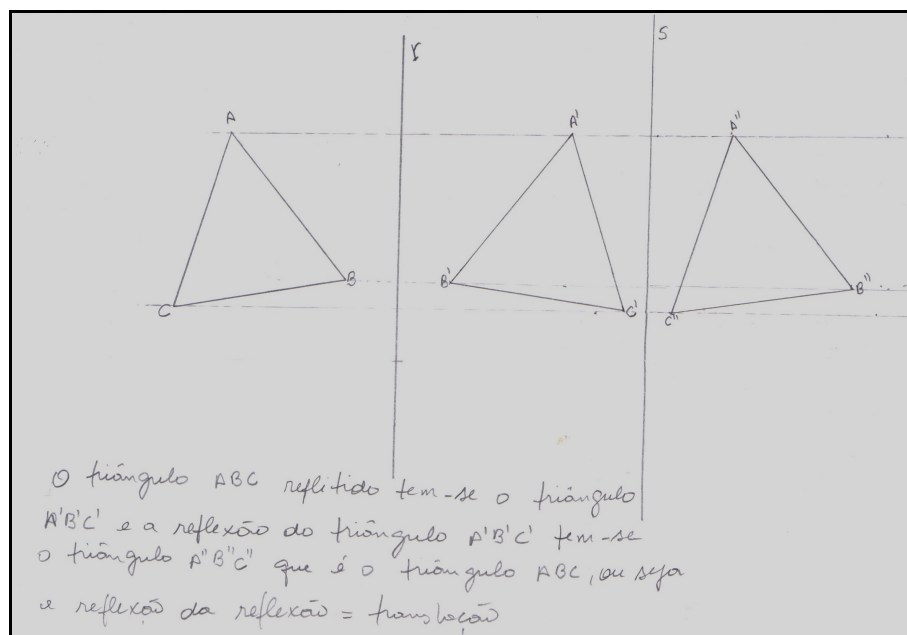 r
S
A
A'
A"
B
B'
B"
C
C'
C"
O triângulo ABC reflitido tem-se o triângulo
A'B'C' e a reflexão do triângulo A'B'C' tem-se
o triângulo A"B"C" que é o triângulo ABC, ou seja
a reflexão da reflexão = translação